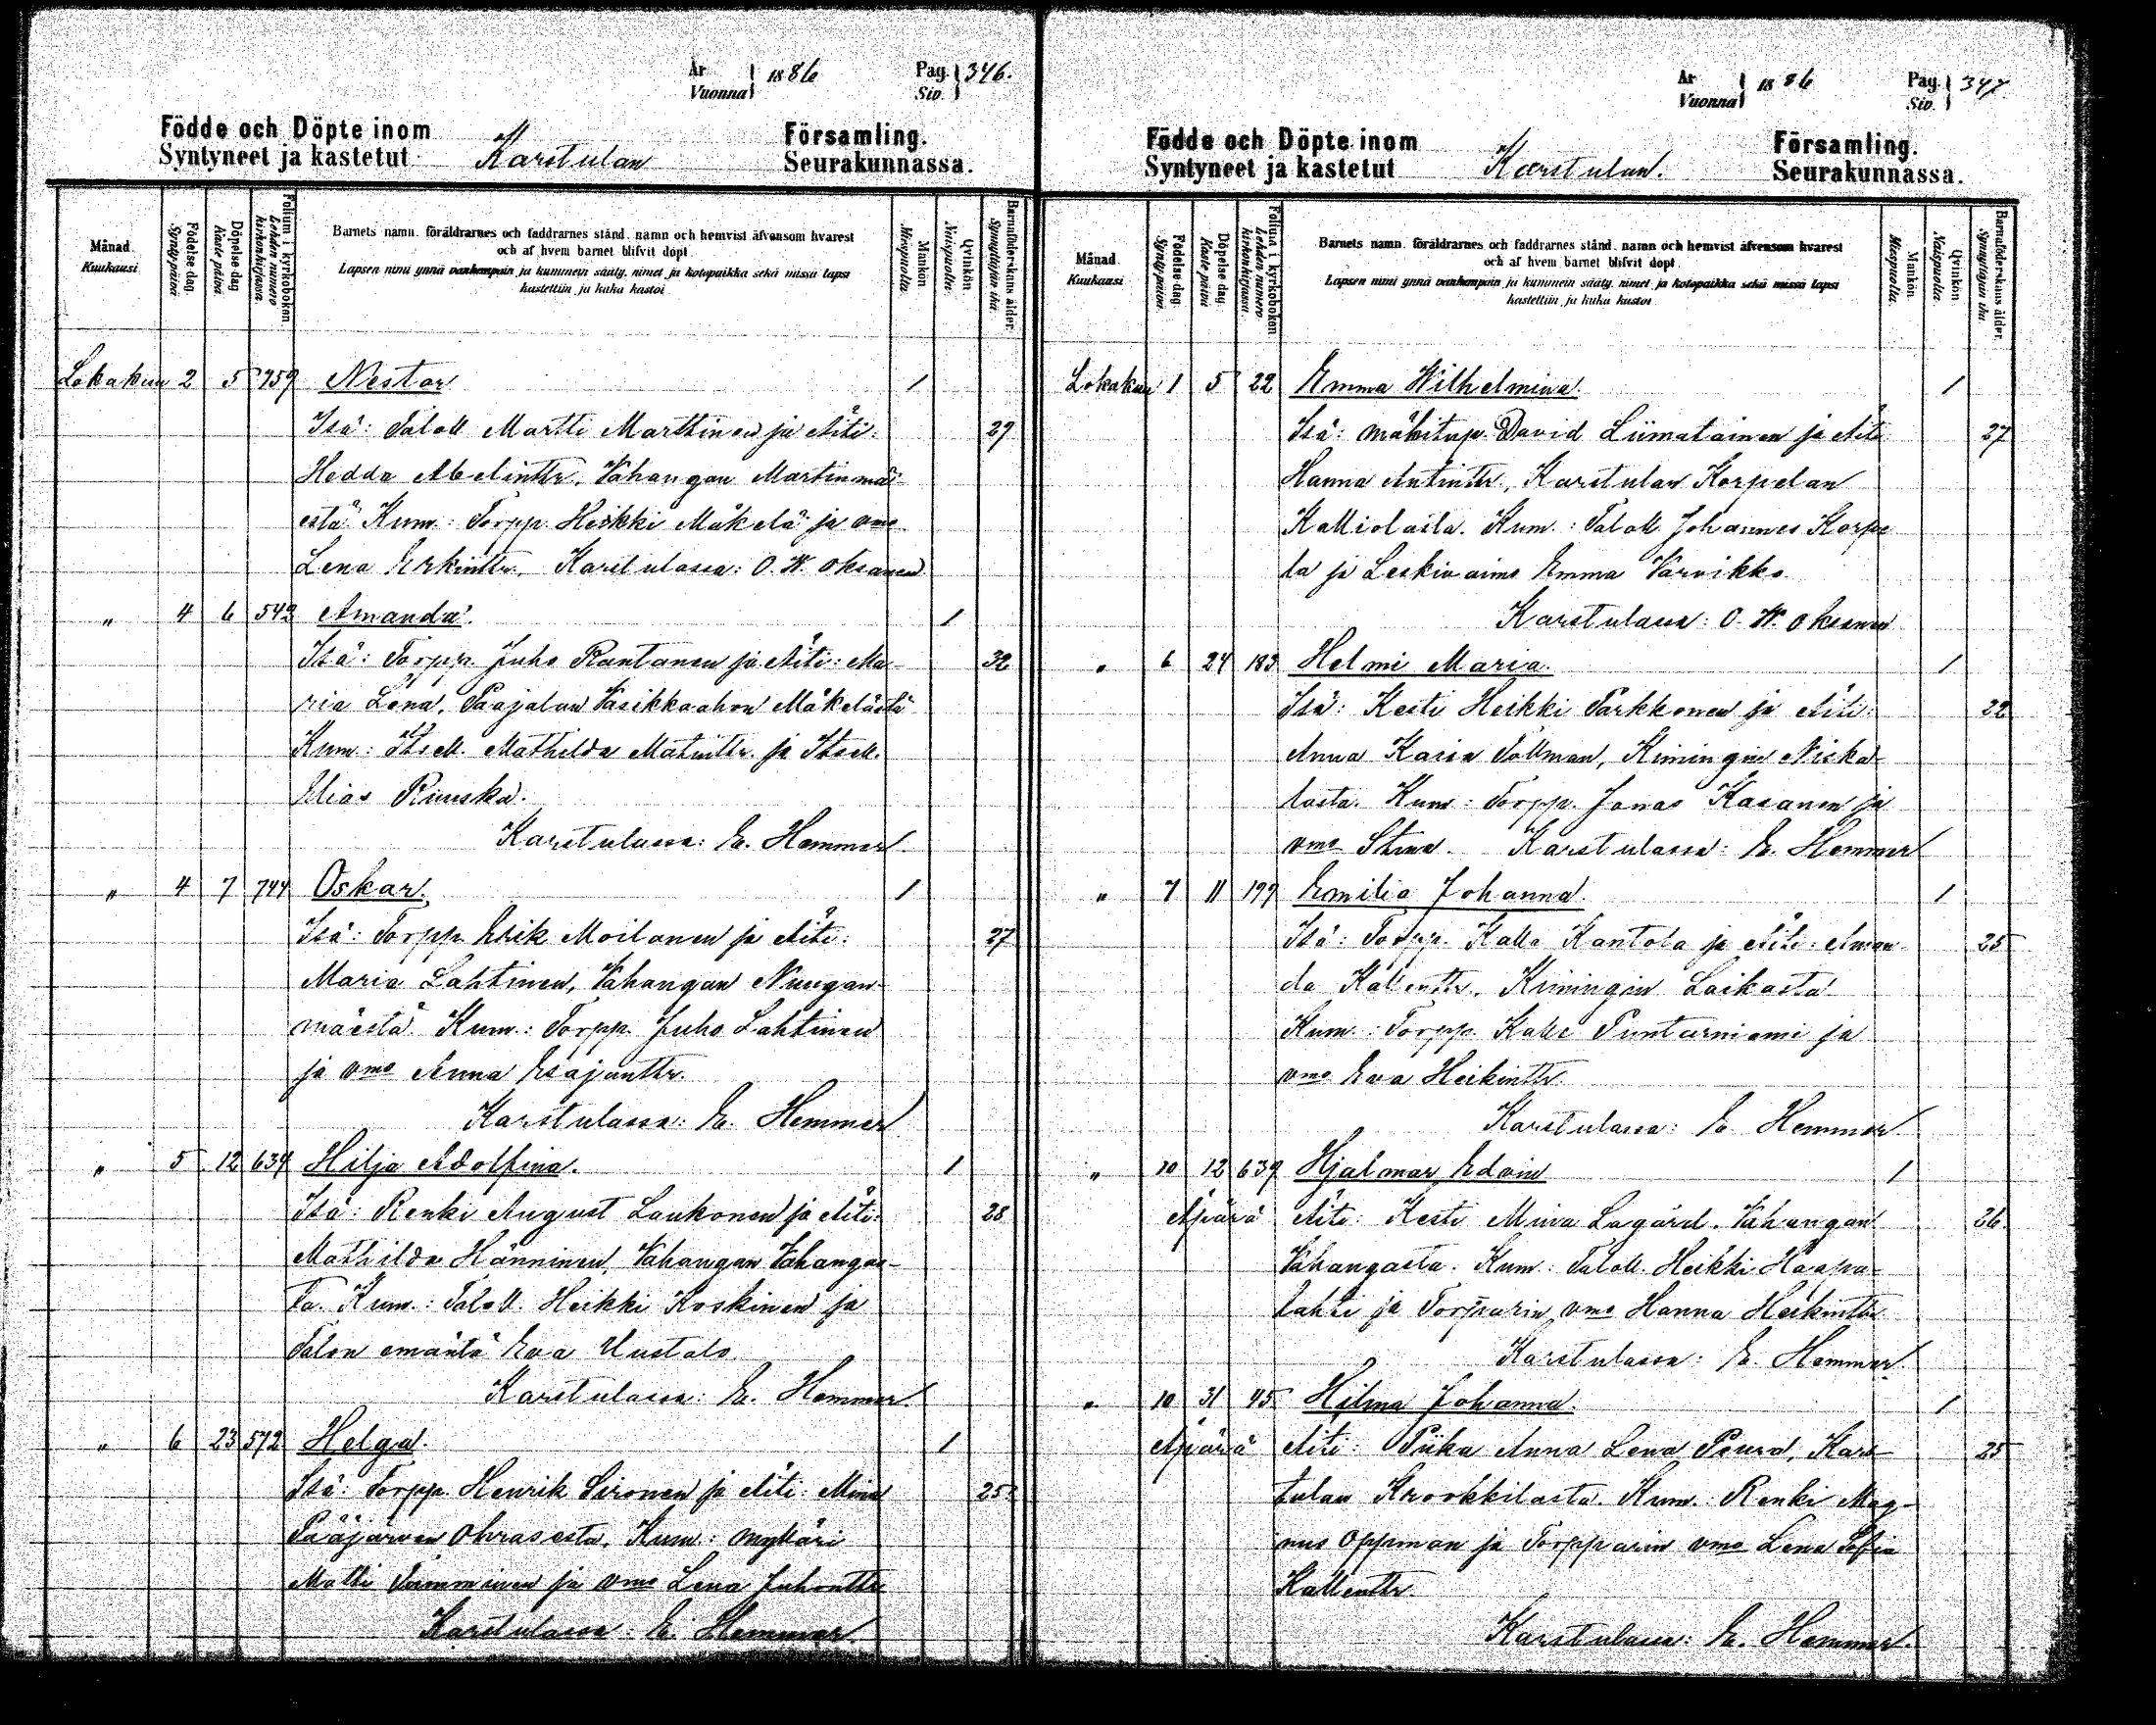 År
Vuonna 1886
Pag.
Siv. 346.
Födde och Döpte inom
Syntyneet ja kastetut
Karstulan
Församling.
Seurakunnassa.
Månad.
Kuukausi.
Födelse dag.
Synty-päivä
Döpelse dag
Kaste päivä
Folium i kyrkoboken
Lehden numero kirkonkirjassa.
Barnets namn. föräldrarnes och faddrarnes stånd. namn och hemvist äfvensom hvarest
och af hvem barnet blifvit döpt
Lapsen nimi ynnä vanhempain ja kummein sääty. nimet ja kotopaikka sekä missä lapsi
kastettiin ja kuka kastoi
Mankön
Miespuolia.
Qvinkön
Naispuolia.
Barnaföderskans ålder.
Synnyttäjän ikä.
Lokakuu 2 5 759 Nestor 1
Isä: Taloll. Martti Marttinen ja Äiti: 29
Hedda Abelinttr. Vahangan Martinmä-
estä. Kum.: Torpp. Heikki Mäkelä ja vmo
Lena Erkintr. Karstulassa: O. W. Oksanen
" 4 6 543 Amanda. 1
Isä: Torpp. Juho Rantanen ja Äiti: Ma- 32
ria Lena, Paajalan Vasikkaahon Mäkelästä
Kum.: Itsell. Mathilda Matintr. ja Itsell.
Elias Ruuska.
Karstulassa: E. Hemmer.
" 4 7 744 Oskar. 1
Isä: Torpp. Erik Moilanen ja Äiti: 27
Maria Lahtinen, Vahangan Nuugan-
mäestä Kum.: Torpp. Juho Lahtinen
ja vmo Anna Esajanttr.
Karstulassa: E. Hemmer
" 5 12 634 Hilja Adolfina. 1
Isä: Renki August Laukonen ja Äiti: 28
Mathilda Hänninen, Vahangan Vahangas-
ta. Kum.: Taloll. Heikki Koskinen ja
Talon emäntä Eva Uustalo.
Karstulassa: E. Hemmer.
" 6 23 572 Helga. 1
Isä: Torpp. Henrik Sironen ja Äiti: Mina 25
Pääjärven Ohrasesta. Kum.: Mylläri
Matti Tamminen ja vmo Lena Juhonttr
Karstulassa: E. Hemmer.
År
Vuonna 1886
Pag.
Siv. 347
Födde och Döpte inom
Syntyneet ja kastetut
Karstulan.
Församling.
Seurakunnassa.
Månad
Kuukausi.
Födelse dag.
Synty-päivä
Döpelse dag.
Kaste päivä
Folium i kyrkoboken
Lehden numero kirkonkirjassa.
Barnets namn. föräldrarnes och faddrarnes stånd. namn och hemvist äfvensom hvarest
och af hvem barnet blifvit döpt
Lapsen nimi ynnä vanhempain ja kummein sääty. nimet ja kotopaikka sekä missä lapsi
kastettiin ja kuka kastoi
Mankön
Miespuolia.
Qvinkön
Naispuolia.
Barnaföderskans ålder.
Synnyttäjän ikä.
Lokakuu 1 5 22 Emma Wilhelmina. 1
Isä: mäkitup. David Liimatainen ja Äiti 27
Hanna Antintr., Karstulan Korpelan
Kalliolasta. Kum.: Taloll. Johannes Korpe
la ja Leskivaimo Emma Varvikko
Karstulassa: O. W. Oksanen
" 6 24 183 Helmi Maria. 1
Isä: Kesti Heikki Parkkonen ja Äiti: 22
Anna Kaisa Tollman, Kimingin Niska-
lasta. Kum.: Torpp. Jonas Kasanen ja
vmo Stina. Karstulassa: E. Hemmer
" 7 11 197 Emilia Johanna. 1
Isä: Torpp. Kalle Kantola ja Äiti: Aman- 25
da Kallenttr. Kimingin Laikasta
Kum.: Torpp. Kalle Puntarniemi ja
vmo Eva Heikinttr.
Karstulassa: E. Hemmer.
" 10 12 639 Hjalmar Edvin 1
Äpärä Äiti: Kesti Mina Lagård. Vahangan 26.
Vahangasta. Kum.: Taloll. Heikki Haapa-
lahti ja Torpparin vmo Hanna Heikinttr
Karstulassa: E. Hemmer.
" 10 31 45 Hilma Johanna. 1
Äpärä Äiti: Piika Anna Lena Peura, Kars- 25
tulan Krookkilasta. Kum. Renki Mag-
nus Oppman ja Torpparin vmo Lena Sofia
Kallenttr.
Karstulassa: E. Hemmer.